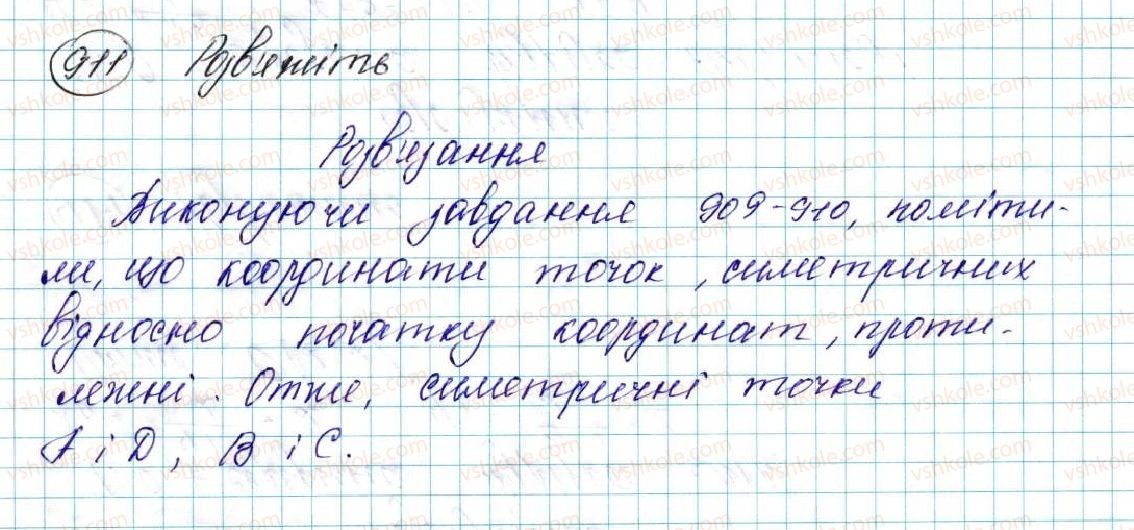 911 Розв'яжіть
Розв'язання
Виконуючи завдання 909-910, поміти-
ли, що координати точок, симетричних
відносно початку координат, проти-
лежні. Отже, симетричні точки
A і D, B і C.